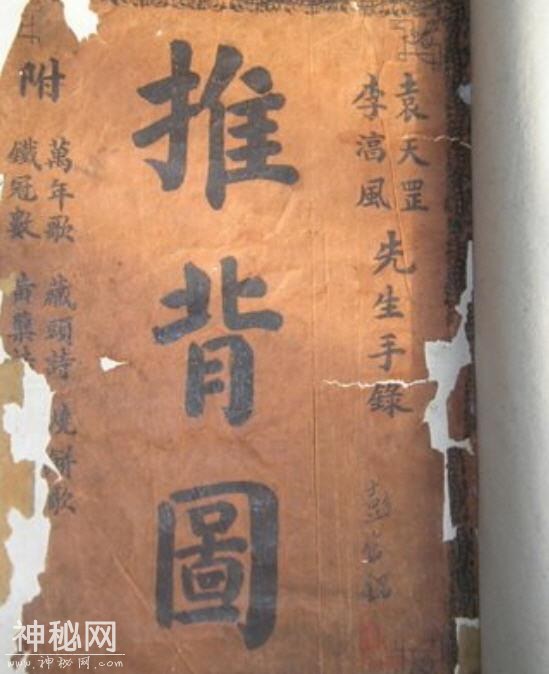 袁天罡
李淳風
先生手錄
推背圖
附
萬年歌 藏頭詩 燒餅歌
鐵冠數 黃蘗
神秘网
www.神秘网.com